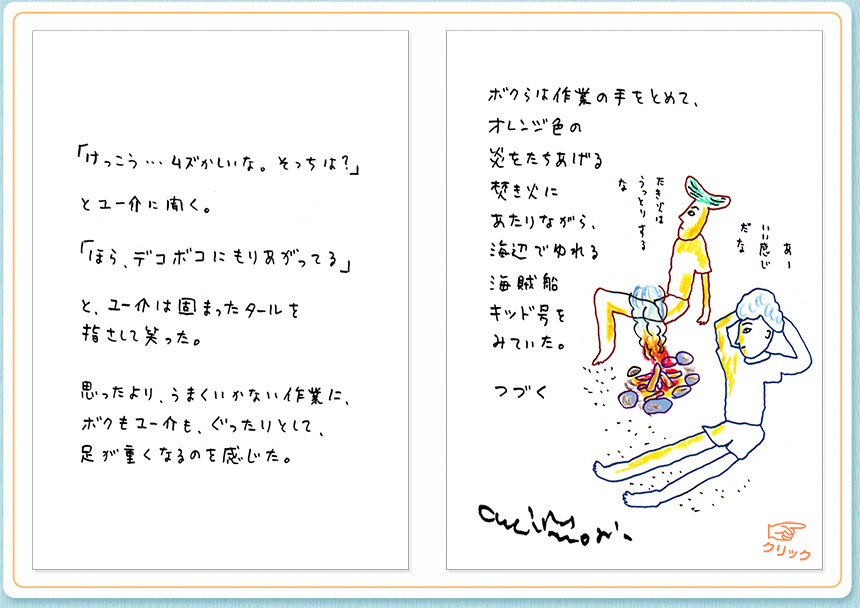 「けっこう…ムズかしいな。そっちは?」
とユー介に聞く。
「ほら、デコボコにもりあがってる」
と、ユー介は固まったタールを
指さして笑った。
思ったより、うまくいかない作業に、
ボクもユー介も、ぐったりとして、
足が重くなるのを感じた。
ボクらは作業の手をとめて、
オレンジ色の
炎をたちあげる
焚き火に
あたりながら、
海辺でゆれる
海賊船
キッド号を
みていた。
つづく
たき火は
うっとりする
な
あー
いい感じ
だな
クリック